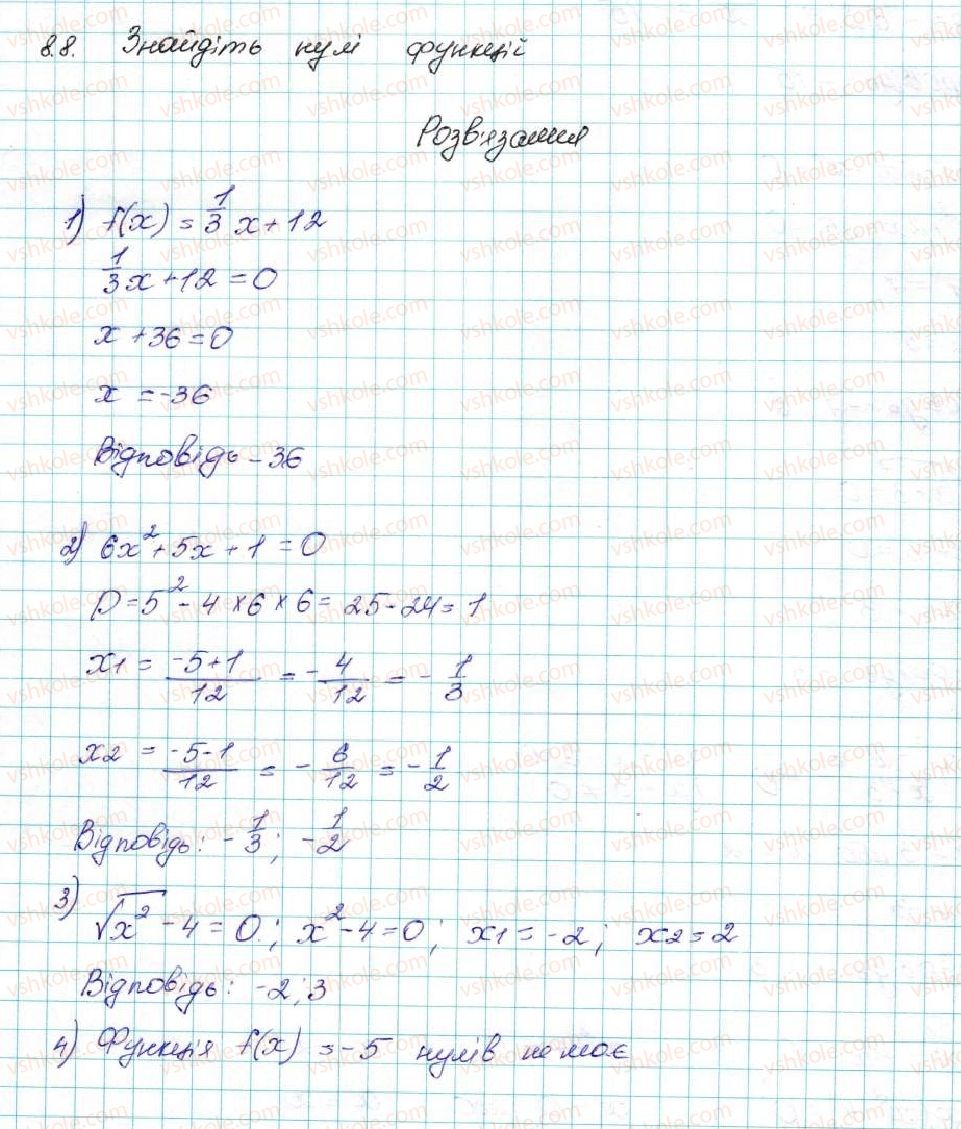 8.8. Знайдіть нулі функцій
Розв'язання
1) f(x) = 1/3 x + 12
1/3 x + 12 = 0
x + 36 = 0
x = -36
Відповідь - 36
2) 6x² + 5x + 1 = 0
D = 5² - 4 × 6 × 6 = 25 - 24 = 1
x1 = (-5+1)/12 = - 4/12 = - 1/3
x2 = (-5-1)/12 = - 6/12 = - 1/2
Відповідь: - 1/3; - 1/2
3) √x² - 4 = 0; x² - 4 = 0; x1 = -2; x2 = 2
Відповідь: -2; 3
4) Функція f(x) = -5 нулів не має